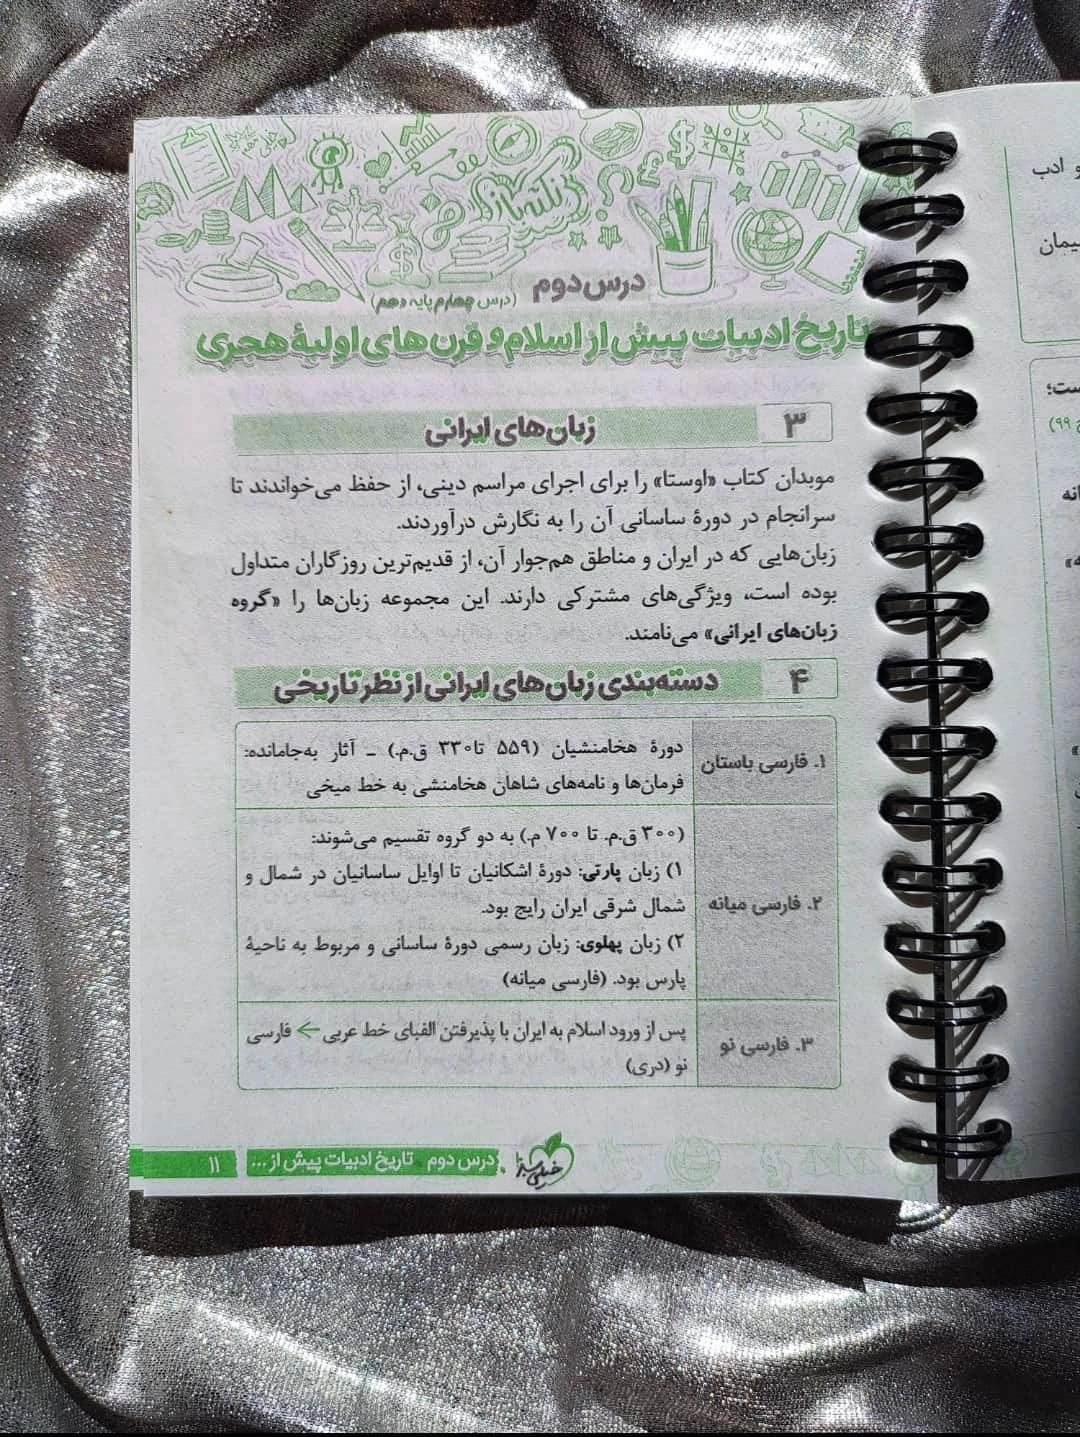 نکته‌باز
درس دوم
(درس چهارم پایه دهم)
تاریخ ادبیات پیش از اسلام و قرن‌های اولیهٔ هجری
۳ زبان‌های ایرانی
موبدان کتاب «اوستا» را برای اجرای مراسم دینی، از حفظ می‌خواندند تا
سرانجام در دورهٔ ساسانی آن را به نگارش درآوردند.
زبان‌هایی که در ایران و مناطق هم‌جوار آن، از قدیم‌ترین روزگاران متداول
بوده است، ویژگی‌های مشترکی دارند. این مجموعه زبان‌ها را «گروه
زبان‌های ایرانی» می‌نامند.
۴ دسته‌بندی زبان‌های ایرانی از نظر تاریخی
۱. فارسی باستان
دورهٔ هخامنشیان (۵۵۹ تا ۳۳۰ ق.م.) ـ آثار به‌جامانده:
فرمان‌ها و نامه‌های شاهان هخامنشی به خط میخی
۲. فارسی میانه
(۳۰۰ ق.م. تا ۷۰۰ م.) به دو گروه تقسیم می‌شوند:
۱) زبان پارتی: دورهٔ اشکانیان تا اوایل ساسانیان در شمال و
شمال شرقی ایران رایج بود.
۲) زبان پهلوی: زبان رسمی دورهٔ ساسانی و مربوط به ناحیهٔ
پارس بود. (فارسی میانه)
۳. فارسی نو
پس از ورود اسلام به ایران با پذیرفتن الفبای خط عربی ← فارسی
نو (دری)
خیلی سبز
درس دوم تاریخ ادبیات پیش از ...
۱۱
و ادب
یمان
ست؛
۹۹)
انه